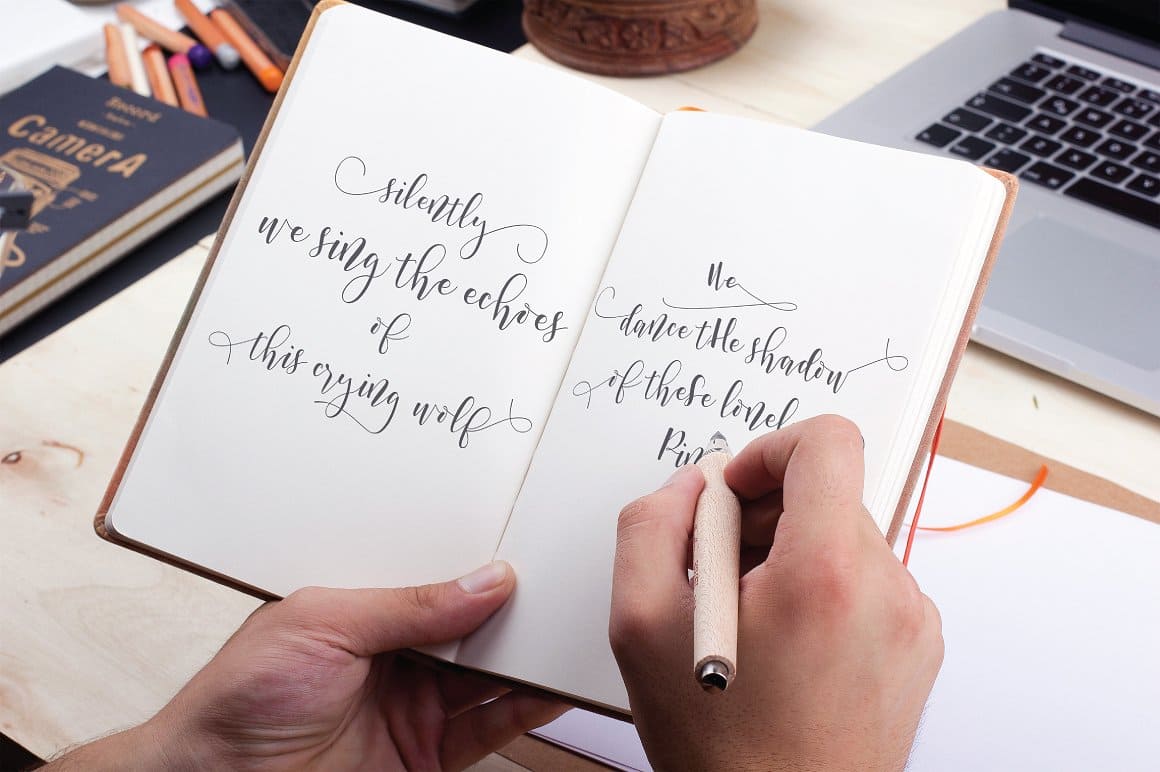 Record
CamerA
silently
we sing the echoes
of
this crying wolf
We
dance tHe shadow
of these lonel
Pin